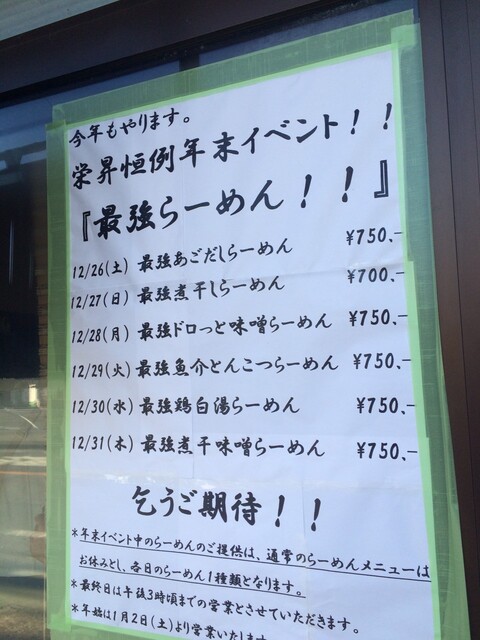 今年もやります。
栄昇恒例年末イベント！！
『最強らーめん！！』
12/26(土) 最強あごだしらーめん ¥750.-
12/27(日) 最強煮干しらーめん ¥700.-
12/28(月) 最強ドロっと味噌らーめん ¥750.-
12/29(火) 最強魚介とんこつらーめん ¥750.-
12/30(水) 最強鶏白湯らーめん ¥750.-
12/31(木) 最強煮干味噌らーめん ¥750.-
乞うご期待！！
*年末イベント中のらーめんのご提供は、通常のらーめんメニューは
お休みとし、各日のらーめん1種類となります。
*最終日は午後3時頃までの営業とさせていただきます。
*年始は1月2日(土)より営業いたします